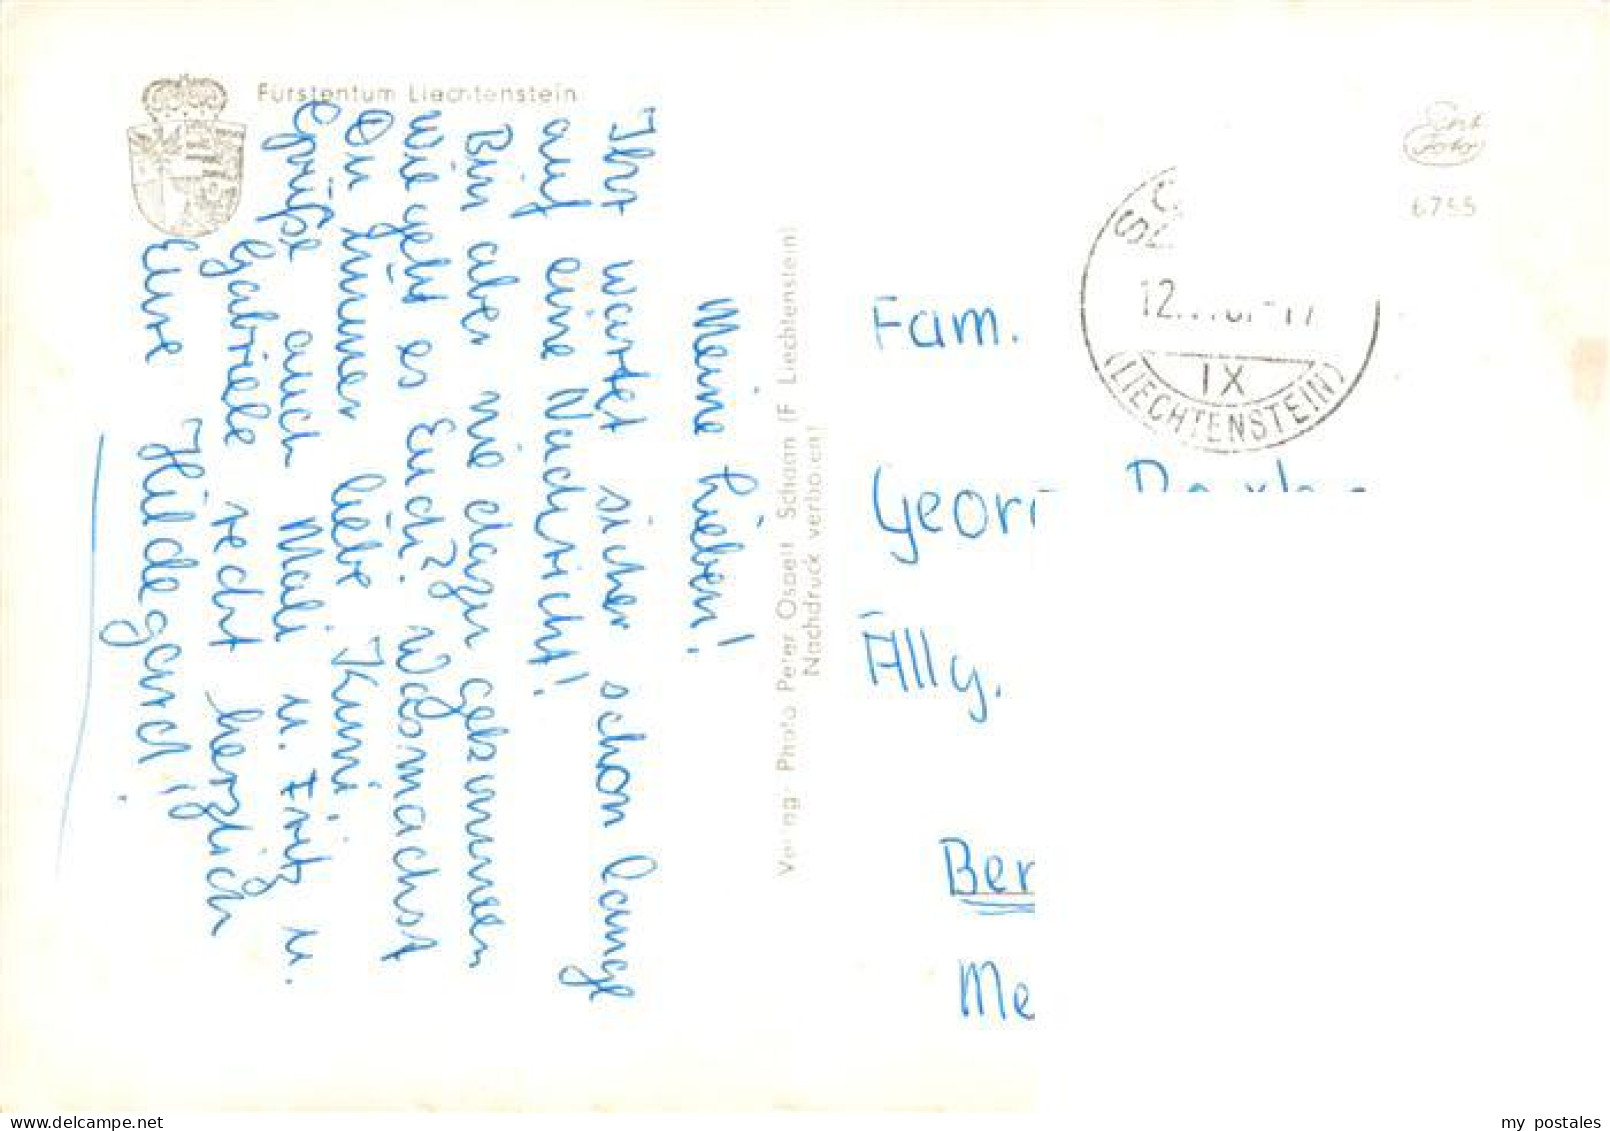 Fürstentum Liechtenstein
Meine Lieben!
Ihr wartet sicher schon lange
auf eine Nachricht!
Bin aber nie dazu gekommen
Wie geht es Euch? Was machst
Du immer liebe Kuni
Grüße auch Mali u. Fritz u.
Gabriele recht herzlich
Eure Hildegard!
Verlag: Photo Peter Ospelt Schaan (F. Liechtenstein)
Nachdruck verboten!
Echt
Foto
6755
12.
17
IX
(LIECHTENSTEIN)
Fam.
Georg
Ally.
Ber
Me
www.delcampe.net
my_postales